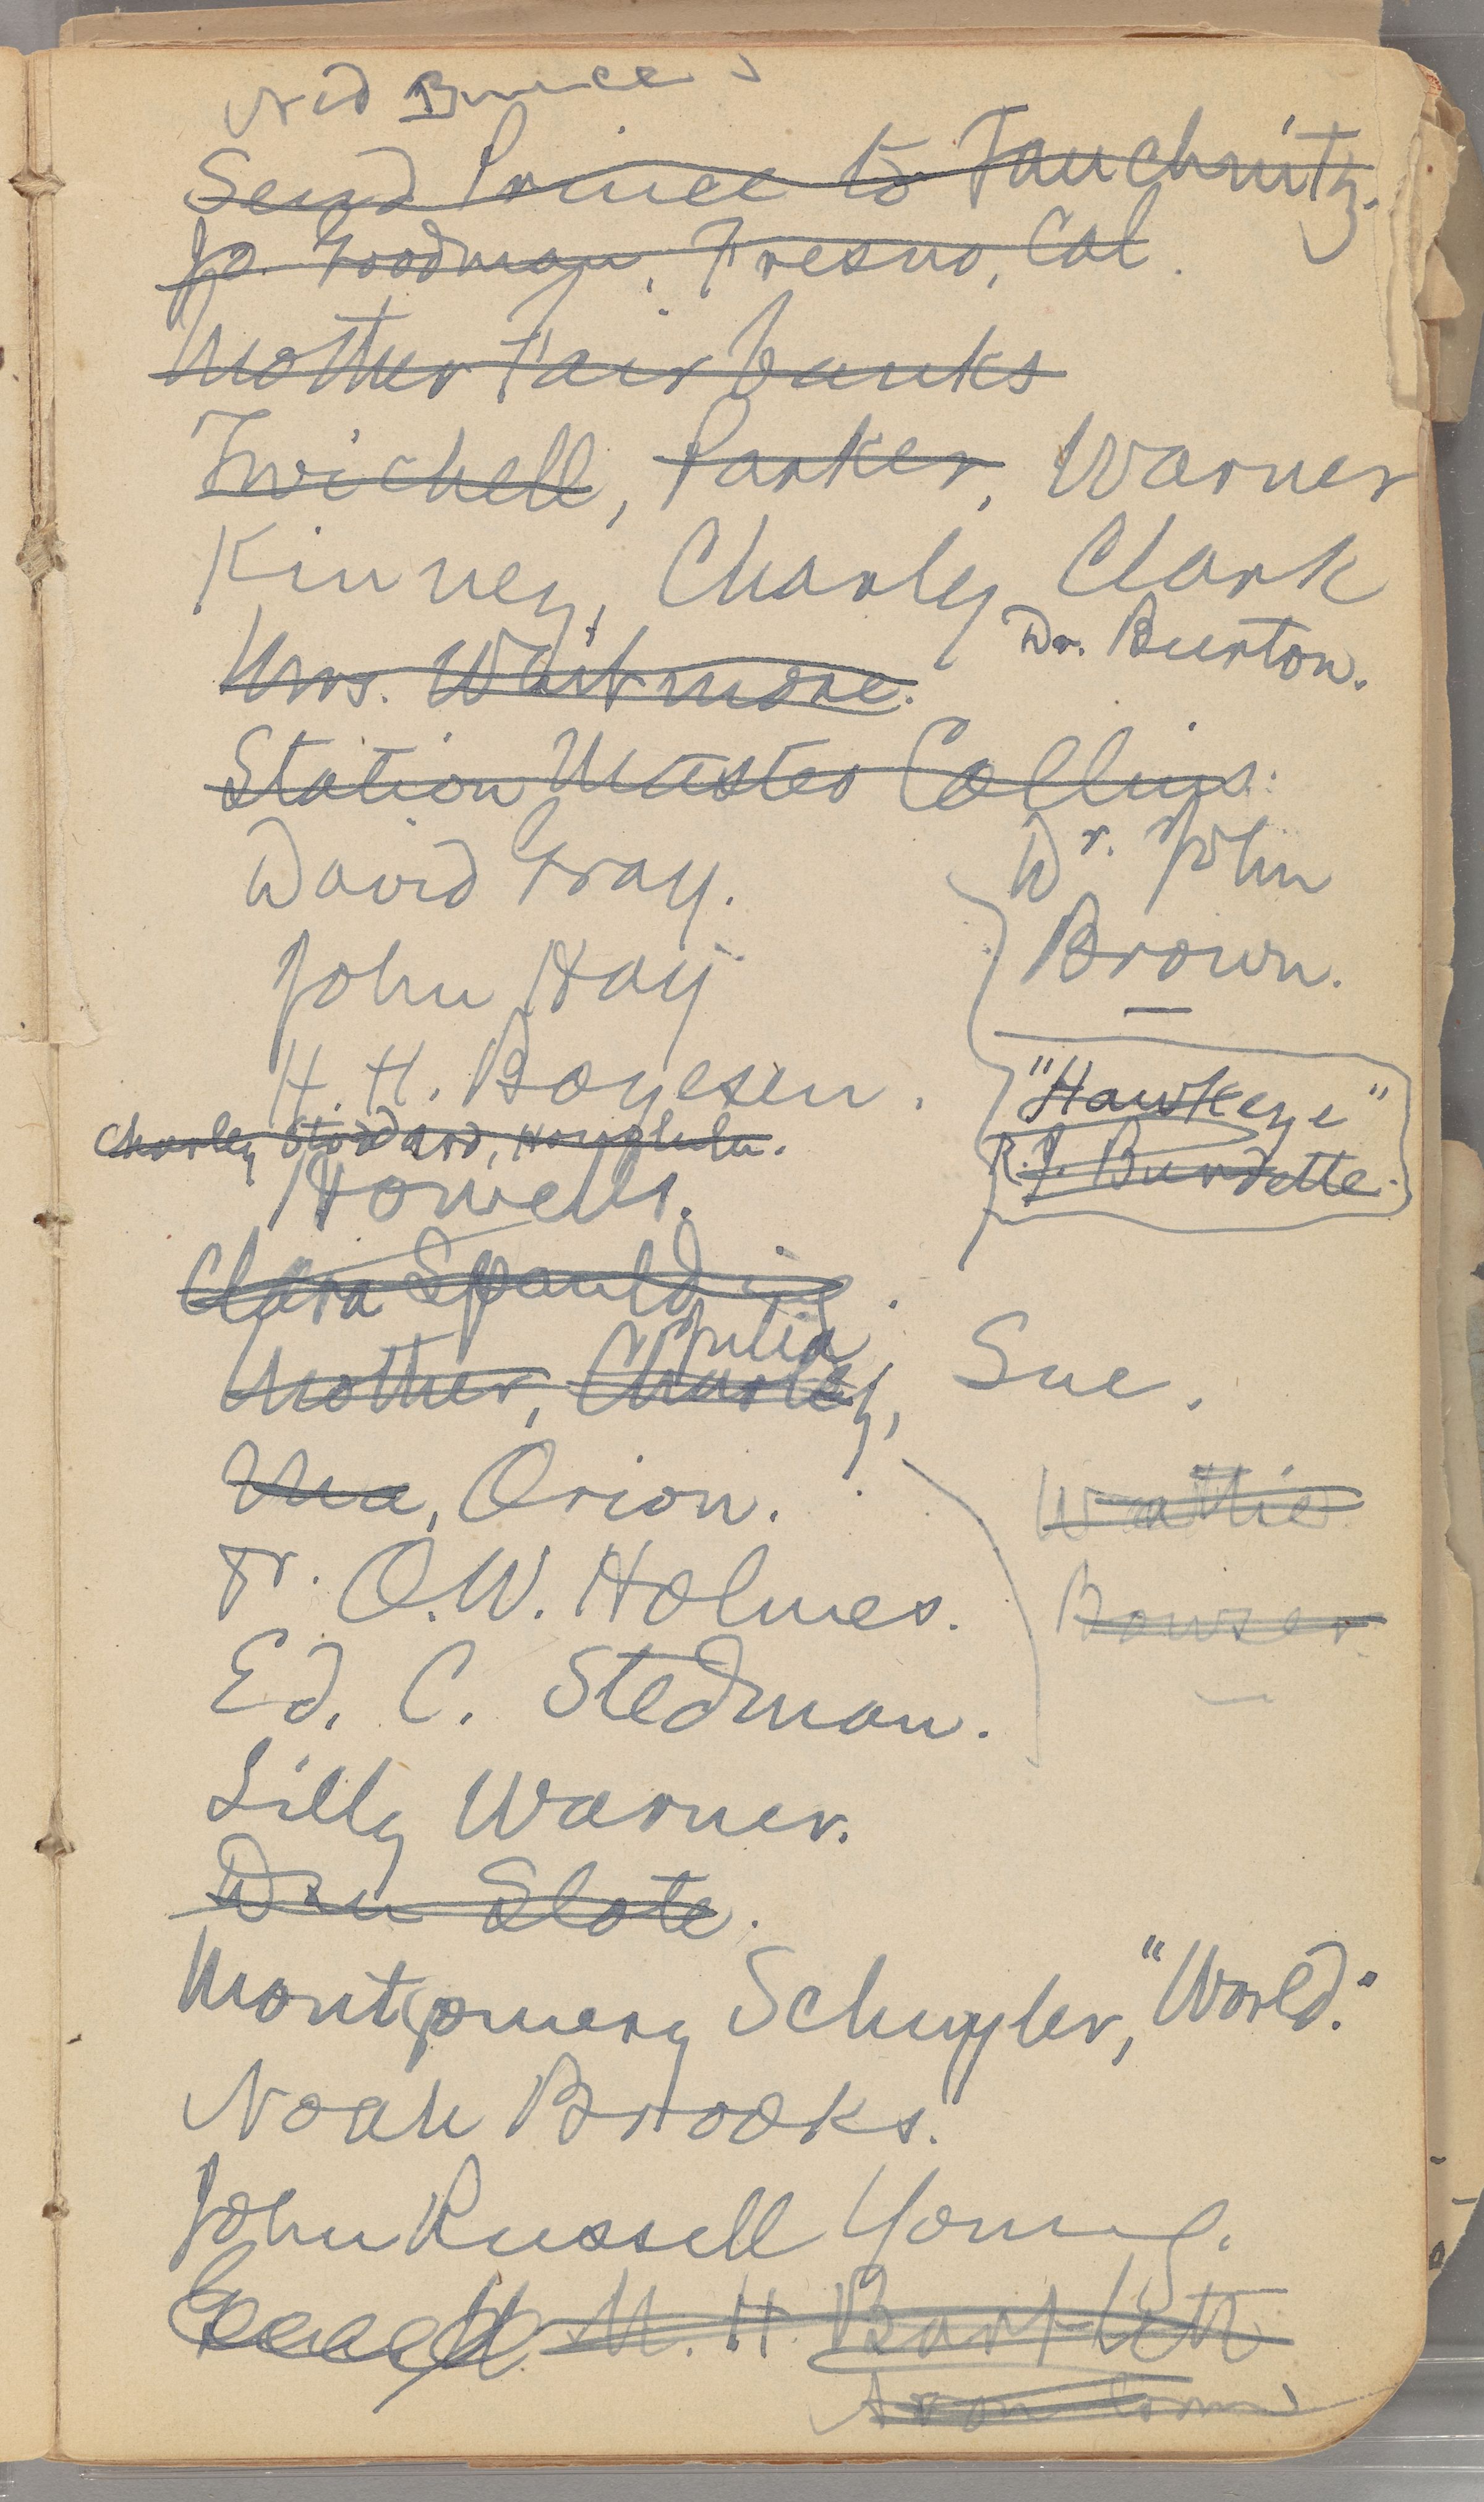 Ned Bunce
Send Prince to Tauchnitz.
Jo. Goodman, Fresno, Cal.
Mother Fairbanks
Twichell, Parker, Warner
Kinney, Charley Clark
Dr. Burton.
Mrs. Whitmore.
Station Master Collins.
David Gray.
Dr. John
Brown.
John Hay
H. H. Boyesen.
"Hawkeye"
R. J. Burdette.
Charley Stoddard, Honolulu.
Howells.
Clara Spaulding.
Julia
Mother, Charley, Sue.
Ma, Orion.
Wattie
Bowser
Dr. O. W. Holmes.
Ed. C. Stedman.
Lilly Warner.
Dan Slote.
Montgomery Schuyler, "World."
Noah Brooks.
John Russell Young.
M. H. Bartlett
Avon Conn